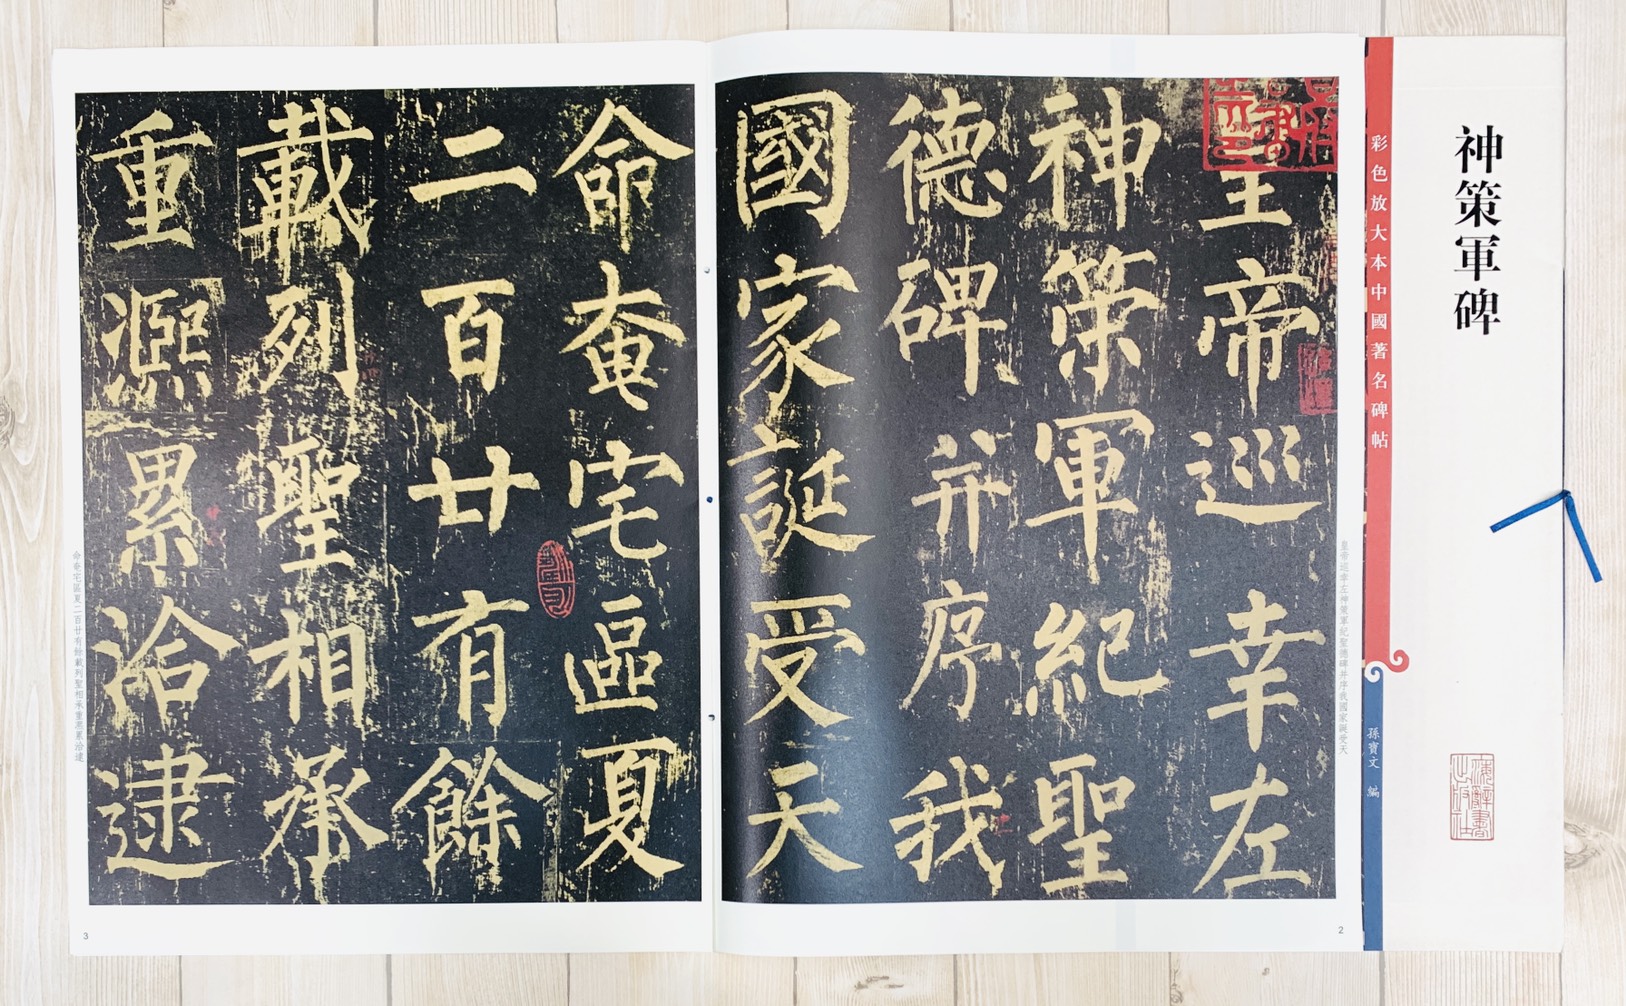 神策軍碑
彩色放大本中國著名碑帖
孫寶文 編
皇帝巡幸左神策軍紀聖德碑并序我國家誕受天
皇帝巡幸左
神策軍紀聖
德碑并序我
國家誕受天
2
命奄宅區夏
二百廿有餘
載列聖相承
重凞累洽逮
命奄宅區夏二百廿有餘載列聖相承重凞累洽逮
3